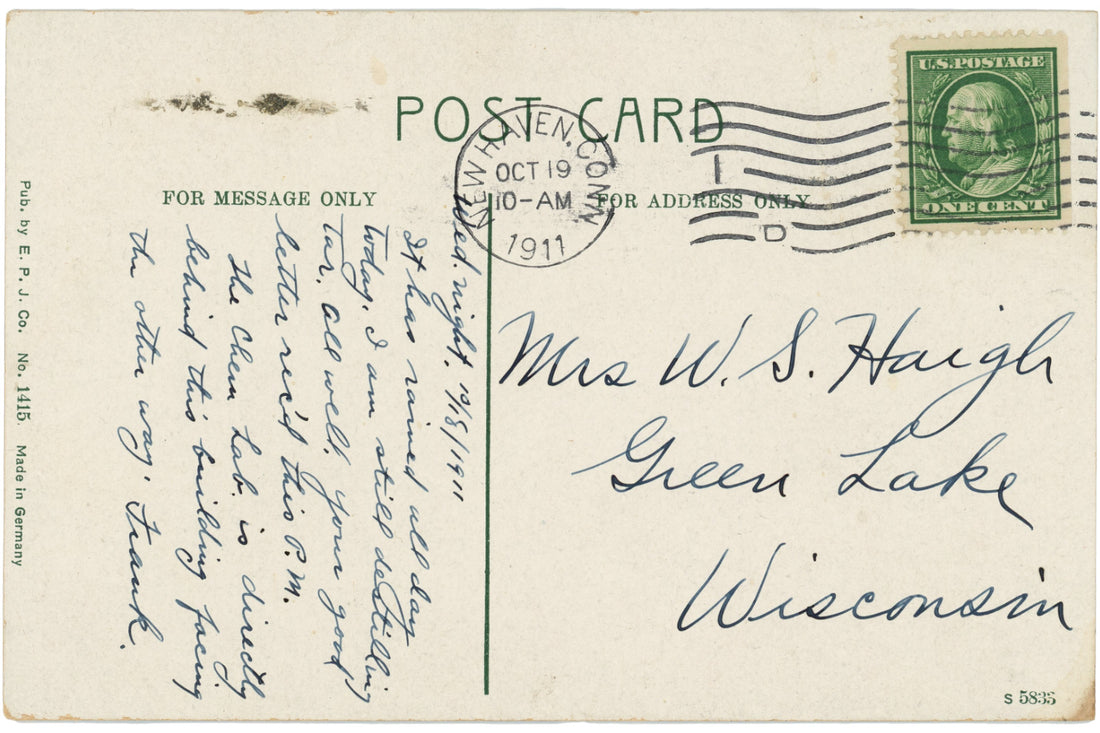 POST CARD
U.S. POSTAGE
ONE CENT
NEW HAVEN, CONN.
OCT 19
10-AM
1911
D
FOR MESSAGE ONLY
FOR ADDRESS ONLY
Wed. night. 10/18/1911
It has rained all day
today. I am still destilling
tar. All well. Your good
letter rec'd this P.M.
The Chem Lab. is directly
behind this building facing
the other way. Frank.
Mrs W. S. Haigh
Green Lake
Wisconsin
Pub. by E. P. J. Co. No. 1415. Made in Germany
S 5835